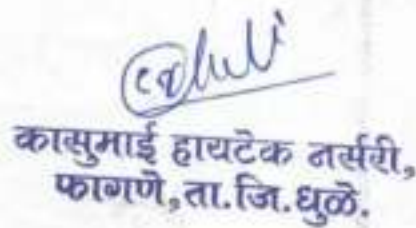 कासुमाई हायटेक नर्सरी,
फागणे,ता.जि.धुळे.